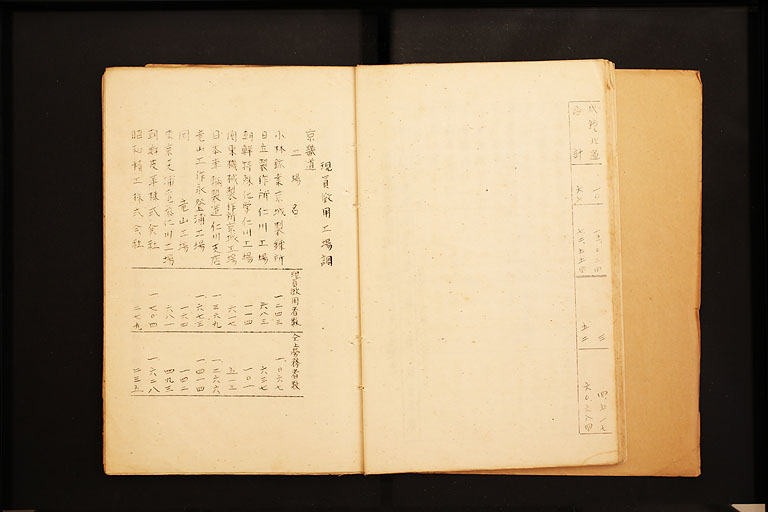 咸鏡北道
合計
現員徴用工場調
京畿道
工場名
現員徴用者数
仝上労務者数
小林鉱業京城製錬所 一二四三 一、〇六七
日立製作所仁川工場 六八三 六三七
朝鮮特殊化学仁川工場 一一四 一〇一
関東機械製作所京城工場 六一七 五一三
日本車輌製造仁川支店 一三六九 一二六六
竜山工作永登浦工場 一六七三 一四一四
同 竜山工場 一六四 一四二
東京芝浦電気仁川工場 六八一 四九三
朝鮮皮革株式会社 一七〇四 一六二八
昭和精工株式会社 二七九 二三五